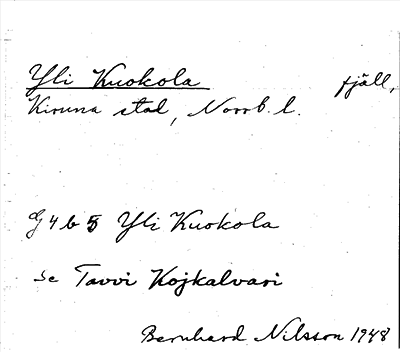 Yli Kuokola fjäll,
Kiruna stad, Norrb. l.
G 4 b 5 Yli Kuokola
se Tavvi Kojkalvari
Bernhard Nilsson 1948